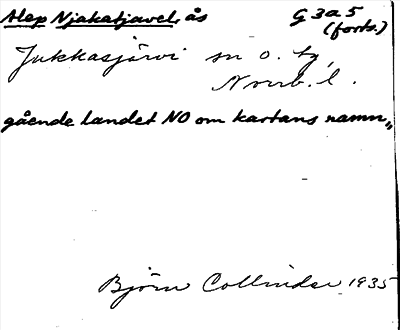 Alep Njakatjavel, ås
G 3a 5
(forts.)
Jukkasjärvi sn o. tg,
Norrb. l.
gående landet NO om kartans namn„
Björn Collinder 1935